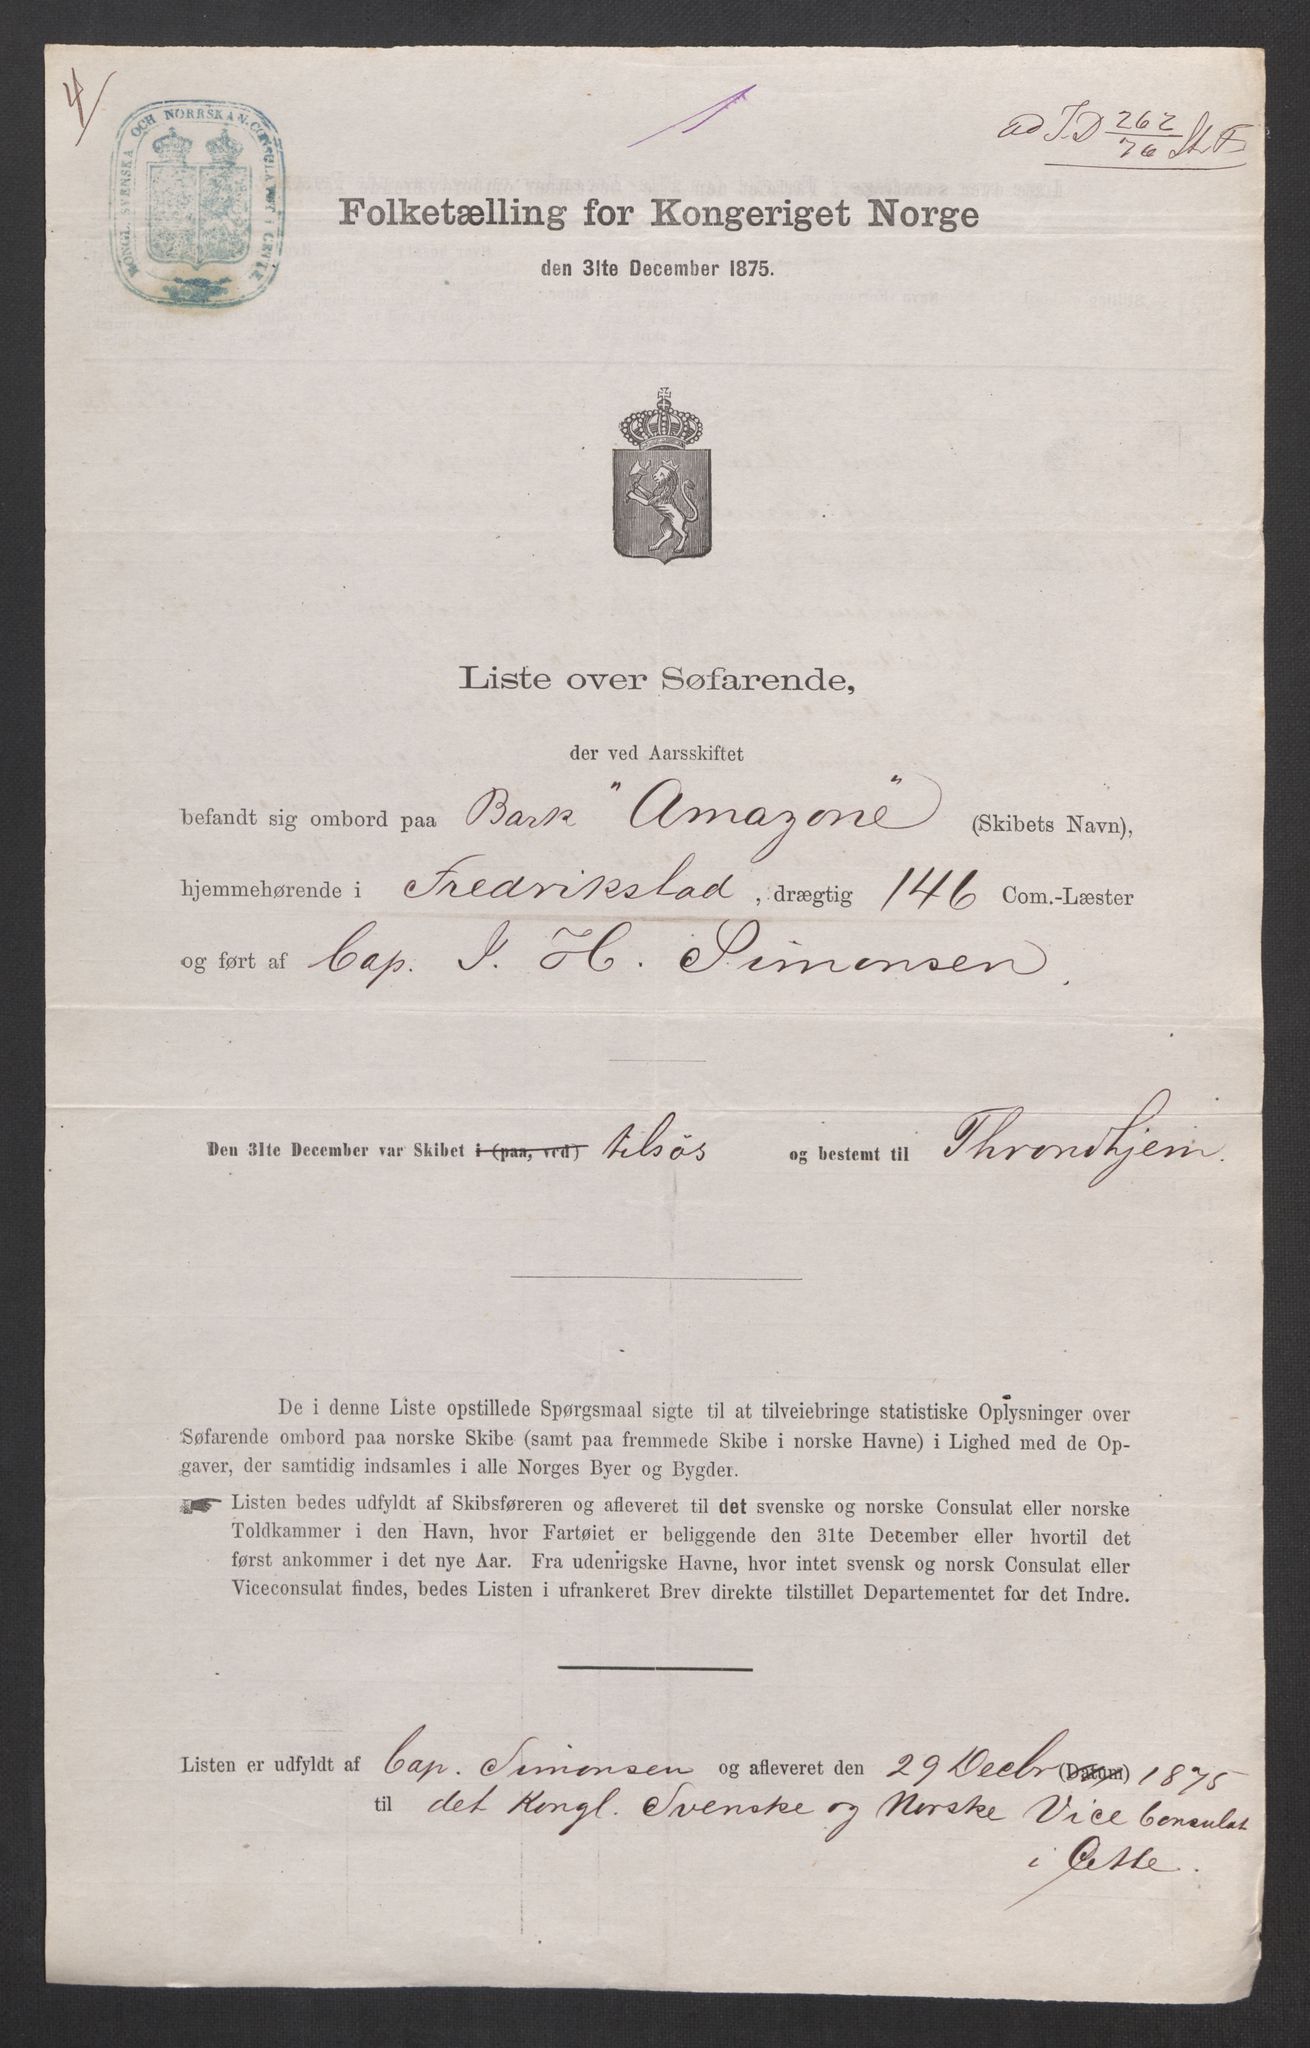 4/
KONGL. SVENSKA OCH NORRSKA V. CONSULATET I CETTE
ad I.D 262/76 St. F
Folketælling for Kongeriget Norge
den 31te December 1875.
Liste over Søfarende,
der ved Aarsskiftet
befandt sig ombord paa Bark "Amazone" (Skibets Navn),
hjemmehørende i Fredrikstad, drægtig 146 Com.-Læster
og ført af Cap. J. H. Simonsen.
Den 31te December var Skibet i (paa, ved) tilsøs og bestemt til Throndhjem.
De i denne Liste opstillede Spørgsmaal sigte til at tilveiebringe statistiske Oplysninger over
Søfarende ombord paa norske Skibe (samt paa fremmede Skibe i norske Havne) i Lighed med de Op-
gaver, der samtidig indsamles i alle Norges Byer og Bygder.
Listen bedes udfyldt af Skibsføreren og afleveret til det svenske og norske Consulat eller norske
Toldkammer i den Havn, hvor Fartøiet er beliggende den 31te December eller hvortil det
først ankommer i det nye Aar. Fra udenrigske Havne, hvor intet svensk og norsk Consulat eller
Viceconsulat findes, bedes Listen i ufrankeret Brev direkte tilstillet Departementet for det Indre.
Listen er udfyldt af Cap. Simonsen og afleveret den 29 Decbr (Datum) 1875
til det Kongl. Svenske og Norske Vice Consulat
i Cette.